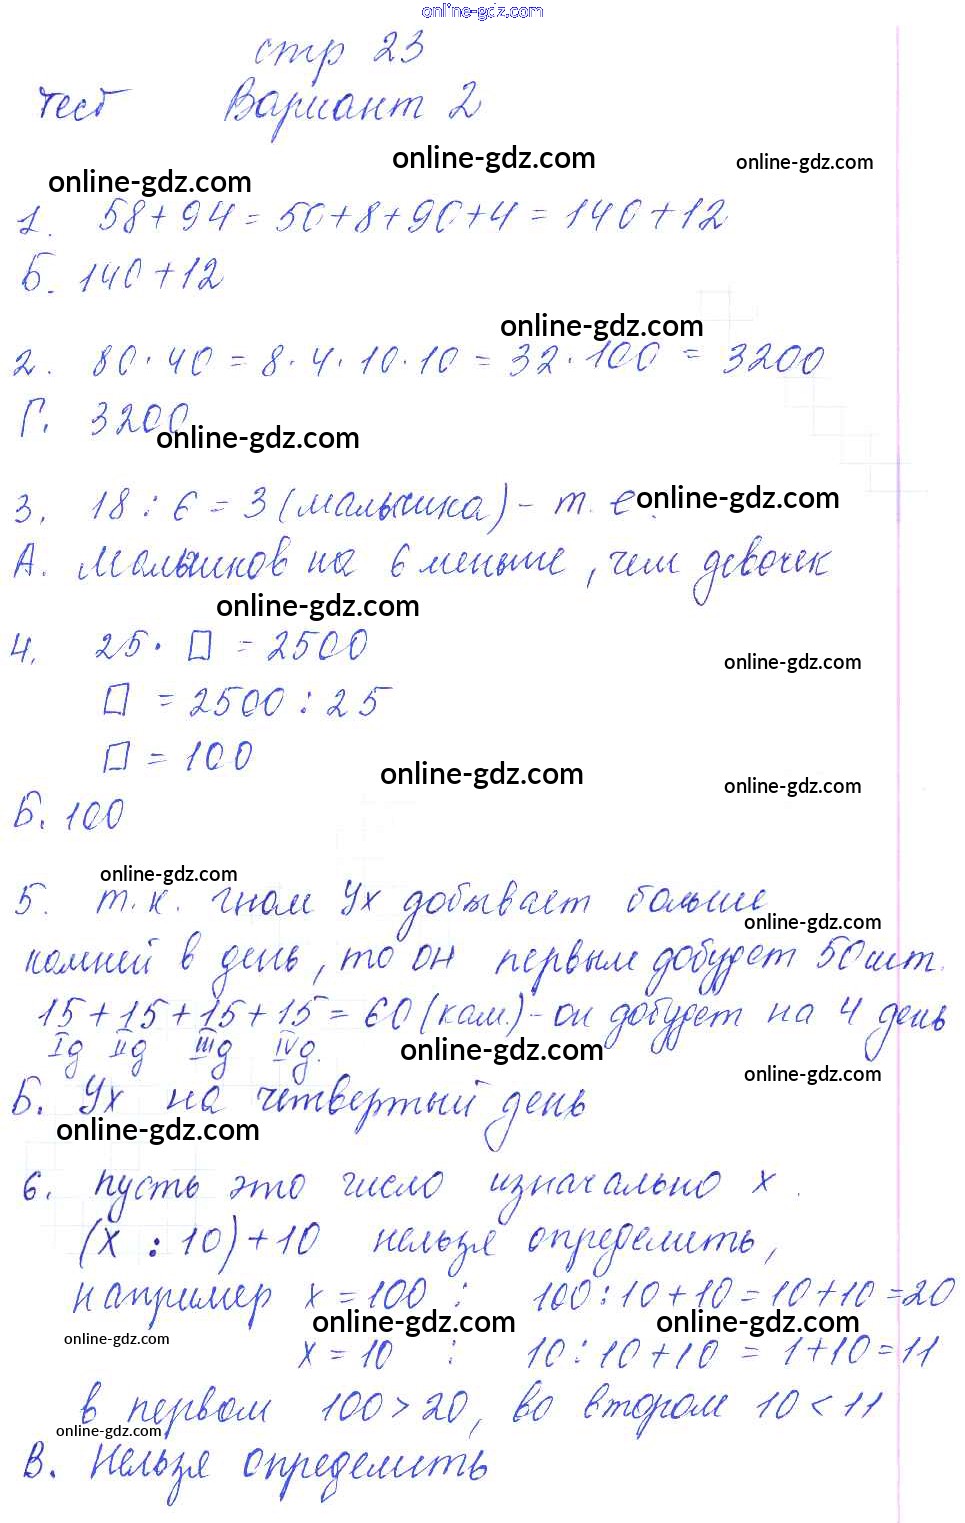 online-gdz.com
стр 23
тест Вариант 2
online-gdz.com online-gdz.com
online-gdz.com
1. 58+94=50+8+90+4=140+12
Б. 140+12
online-gdz.com
2. 80·40=8·4·10·10=32·100=3200
Г. 3200
online-gdz.com
3. 18:6=3(малышка)-т.е. online-gdz.com
А. Малышков на 6 меньше, чем девочек
online-gdz.com
4. 25·□=2500
online-gdz.com
□=2500:25
□=100
online-gdz.com online-gdz.com
Б. 100
online-gdz.com
5. т.к. гном Ух добывает больше
online-gdz.com
камней в день, то он первым добудет 50шт.
15+15+15+15=60(кам.)-он добудет на 4 день
Iд IIд IIIд IVд. online-gdz.com
online-gdz.com
Б. Ух на четвертый день
online-gdz.com
6. пусть это число изначально х.
(х:10)+10 нельзя определить,
например х=100: 100:10+10=10+10=20
online-gdz.com online-gdz.com
online-gdz.com
х=10: 10:10+10=1+10=11
в первом 100>20, во втором 10<11
online-gdz.com
В. Нельзя определить